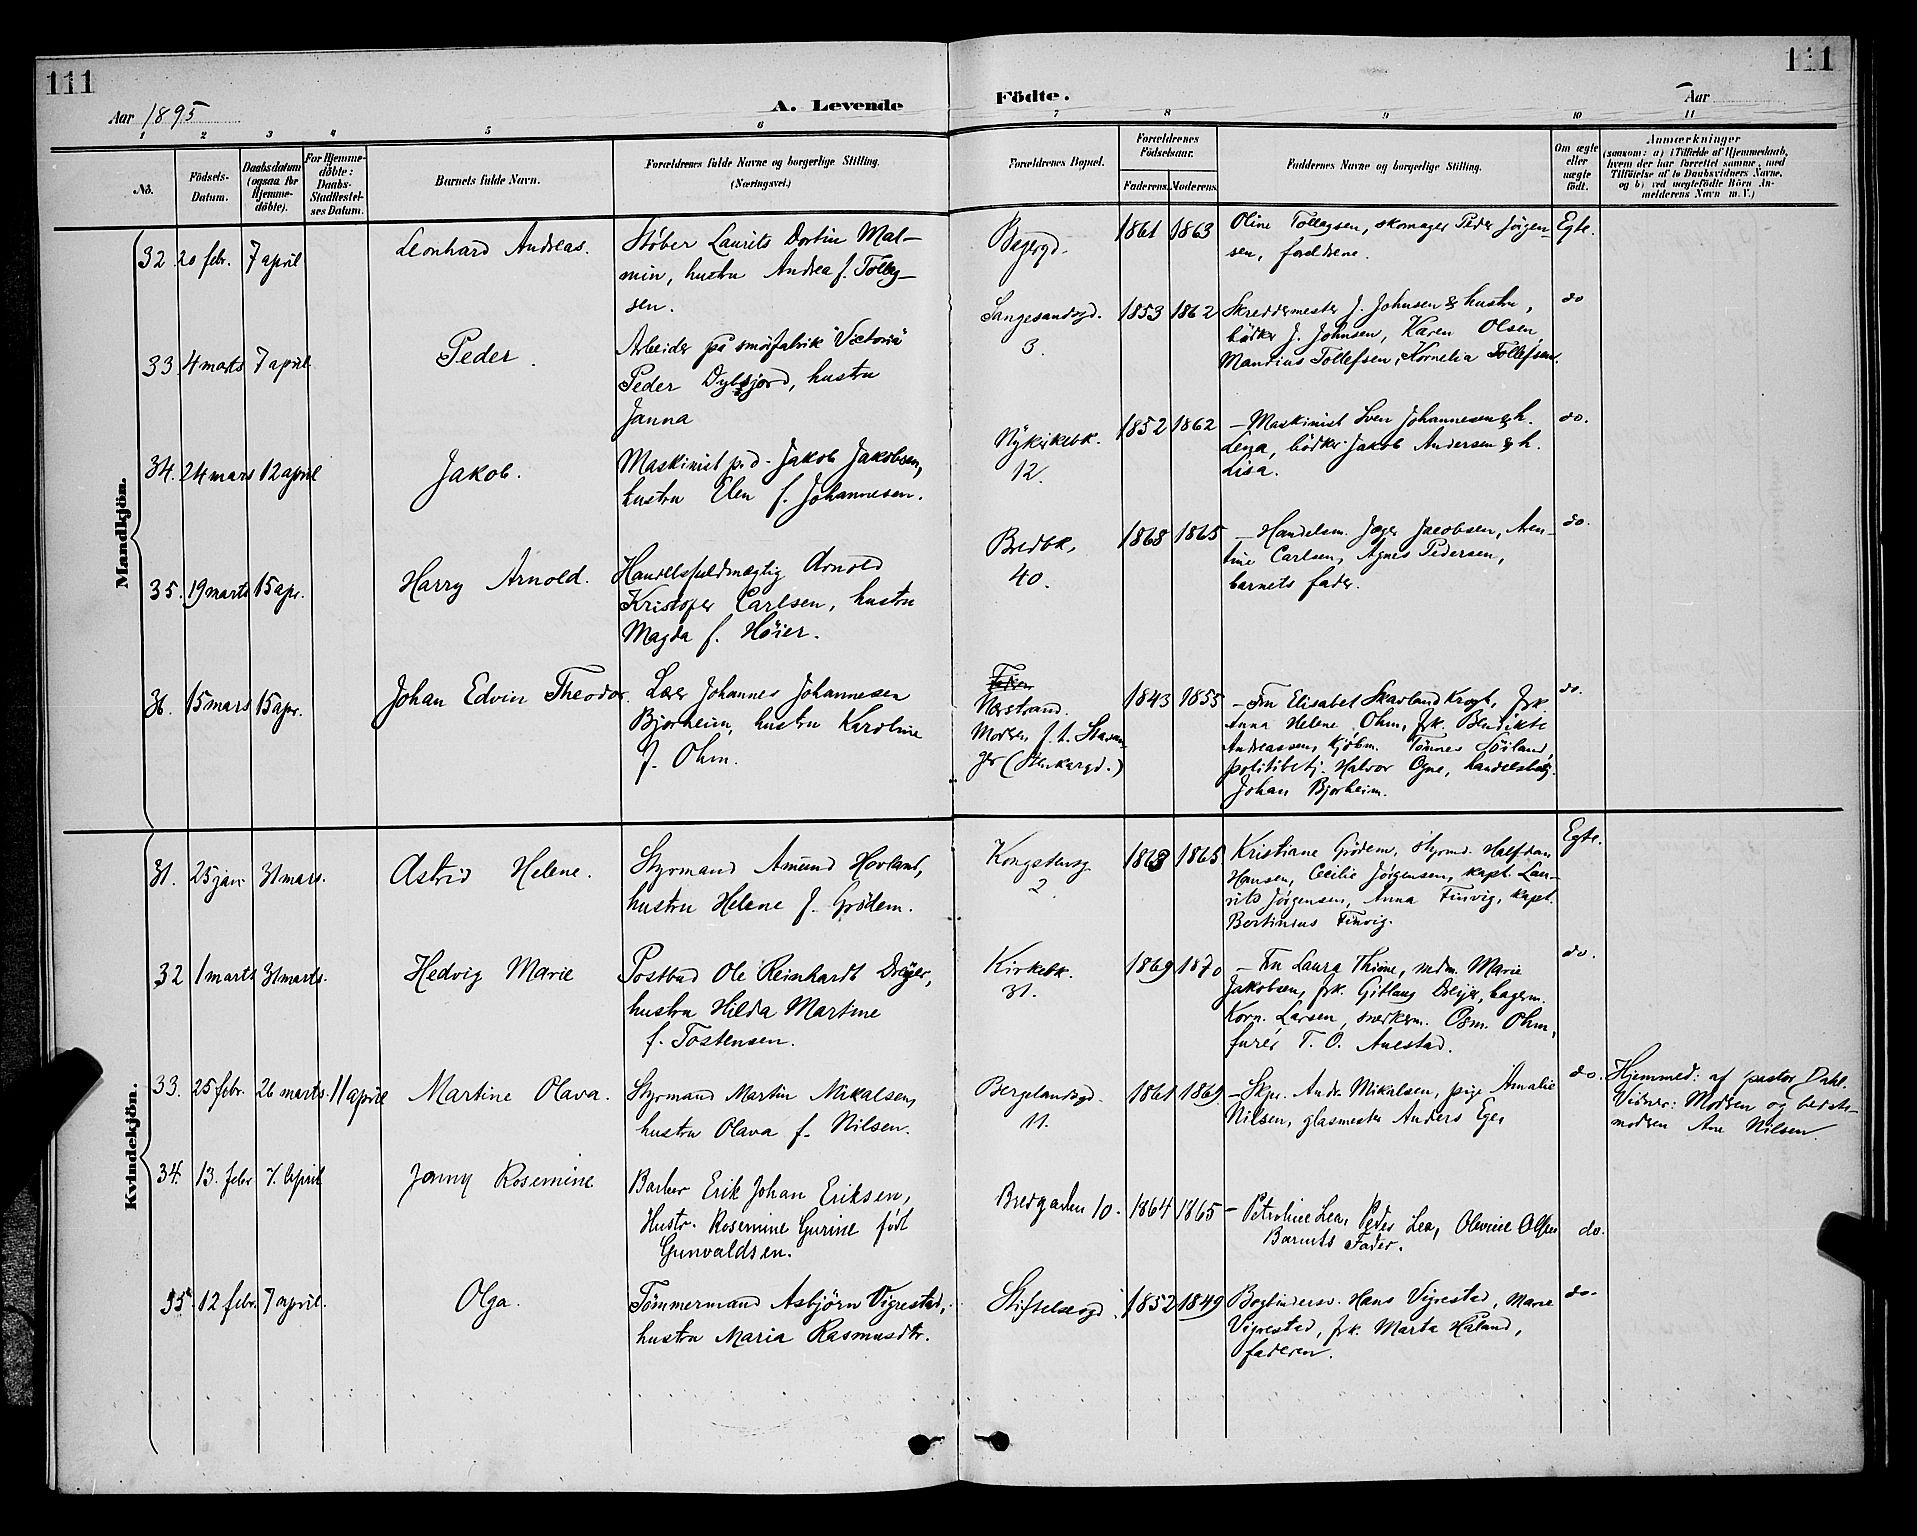 111
111
Aar 1895
A. Levende Födte.
Aar
1 2 3 4 5 6 7 8 9 10 11
No.
Födsels-Datum.
Daabsdatum (ogsaa for Hjemme-döbte).
For Hjemme-döbte: Daabs-Stadfæstel-ses Datum.
Barnets fulde Navn.
Forældrenes fulde Navne og borgerlige Stilling. (Næringsvei.)
Forældrenes Bopæl.
Forældrenes Födselsaar.
Faderens. Moderens.
Faddernes Navne og borgerlige Stilling.
Om ægte eller uægte födt.
Anmærkninger (saasom: a) i Tilfælde af Hjemmedaab, hvem der har forrettet samme, med Tilföielse af to Daabsvidners Navne, og b) ved uægtefödte Börn An-melderens Navn m. V.)
Mandkjön.
32. 20 febr. 7 april
Leonhard Andreas.
Støber Laurits Dortin Mal-
min, hustru Andrea f. Tolleg-
sen.
Bejergd.
1861 1863
Oline Tollegsen, skomager Peder Jørgen-
sen, foreldrene.
Egte.
33 4 marts 7 april
Peder.
Arbeider på smörfabrik "Victoria"
Peder Dybsjord, hustru
Janna
Langesandsgd.
3.
1853 1862
Skreddermester J. Johnsen & hustru,
bödker J. Johnsen, Karen Olsen,
Mandius Tollefsen, Kornelia Tollefsen.
do
34. 24 mars 12 april
Jakob.
Maskinist Jakob Jakobsen,
hustru Elen f. Johannesen.
Nykirkebk.
12.
1852 1862
- Maskinist Sven Johannesen & h.
Lega, bödker Jakob Andersen & h.
Lisa.
do.
35. 19 marts 15 apr.
Harry Arnold.
Handelsfuldmægtig Arnold
Kristofer Carlsen, hustru
Magda f. Höier.
Bredbk.
40.
1868 1865
- Handelsm. Jæger Jacobsen, Aen-
tine Carlsen, Agnes Pedersen,
barnets fader.
do.
36. 15 mars 15 apr.
Johan Edvin Theodor.
Lærer Johannes Johannesen
Bjorheim, hustru Karoline
f. Ohm.
Nerstrand.
Modren f. t. Stavan-
ger (Stenkargd.)
1843 1855
- Fru Elisabet Skavland Krogh, frk
Anna Helene Ohm, frk. Benedikte
Andreassen, kjöbm. Tönnes Söiland,
politibetj. Halvor Ogne, handelsbetj.
Johan Bjorheim.
do.
Kvindekjön.
31. 25 jan. 31 mars.
Astrid Helene.
Styrmand Amund Hovland,
hustru Helene f. Grödem.
Kongsteinsg
2
1863 1865
Kristiane Grödem, styrmd. Halfdan
Hansen, Cecilie Jörgensen, kapt. Lau-
rits Jörgensen, Anna Finvig, kapt.
Bertinius Finvig.
Egte.
32 1 marts 31 marts.
Hedvig Marie
Postbud Ole Reinhardt Dreyer,
hustru Hilda Martine
f. Tostensen.
Kirkebk.
31.
1869 1870
- Fru Laura Thime, mdm. Marie
Jakobsen, frk. Gitlaug Dreyer, bagerm.
Korn. Larsen, snedkerm. Osm. Ohm,
furér T. O. Auestad.
do.
33. 25 febr. 26 marts. 11 april
Martine Olava.
Styrmand Martin Mikalsen,
hustru Olava f. Nilsen.
Bergelandsgd.
11.
1861 1869
- Skpr. Andr. Mikalsen, pige Amalie
Nilsen, glasmester Anders Eger
do.
Hjemmed: af pastor Dahl.
Vidner: Modren og bedste-
modren Ane Nilsen.
34. 13. febr 7. April
Jonny Rosemine
Barber Erik Johan Eriksen,
Hustr. Rosemine Gurine född
Gunvaldsen.
Bredgaden 10.
1864 1865
- Petroline Lea, Peder Lea, Olevine Olsen
Barnets Fader.
do.
35. 12 febr. 7 april.
Olga.
Tömmermand Asbjörn Vigrestad,
hustru Maria Rasmusdtr.
Stiftelsesgd.
1852 1849
Bogbindersv. Hans Vigrestad, Marie
Vigrestad, frk. Marta Håland,
faderen.
do.